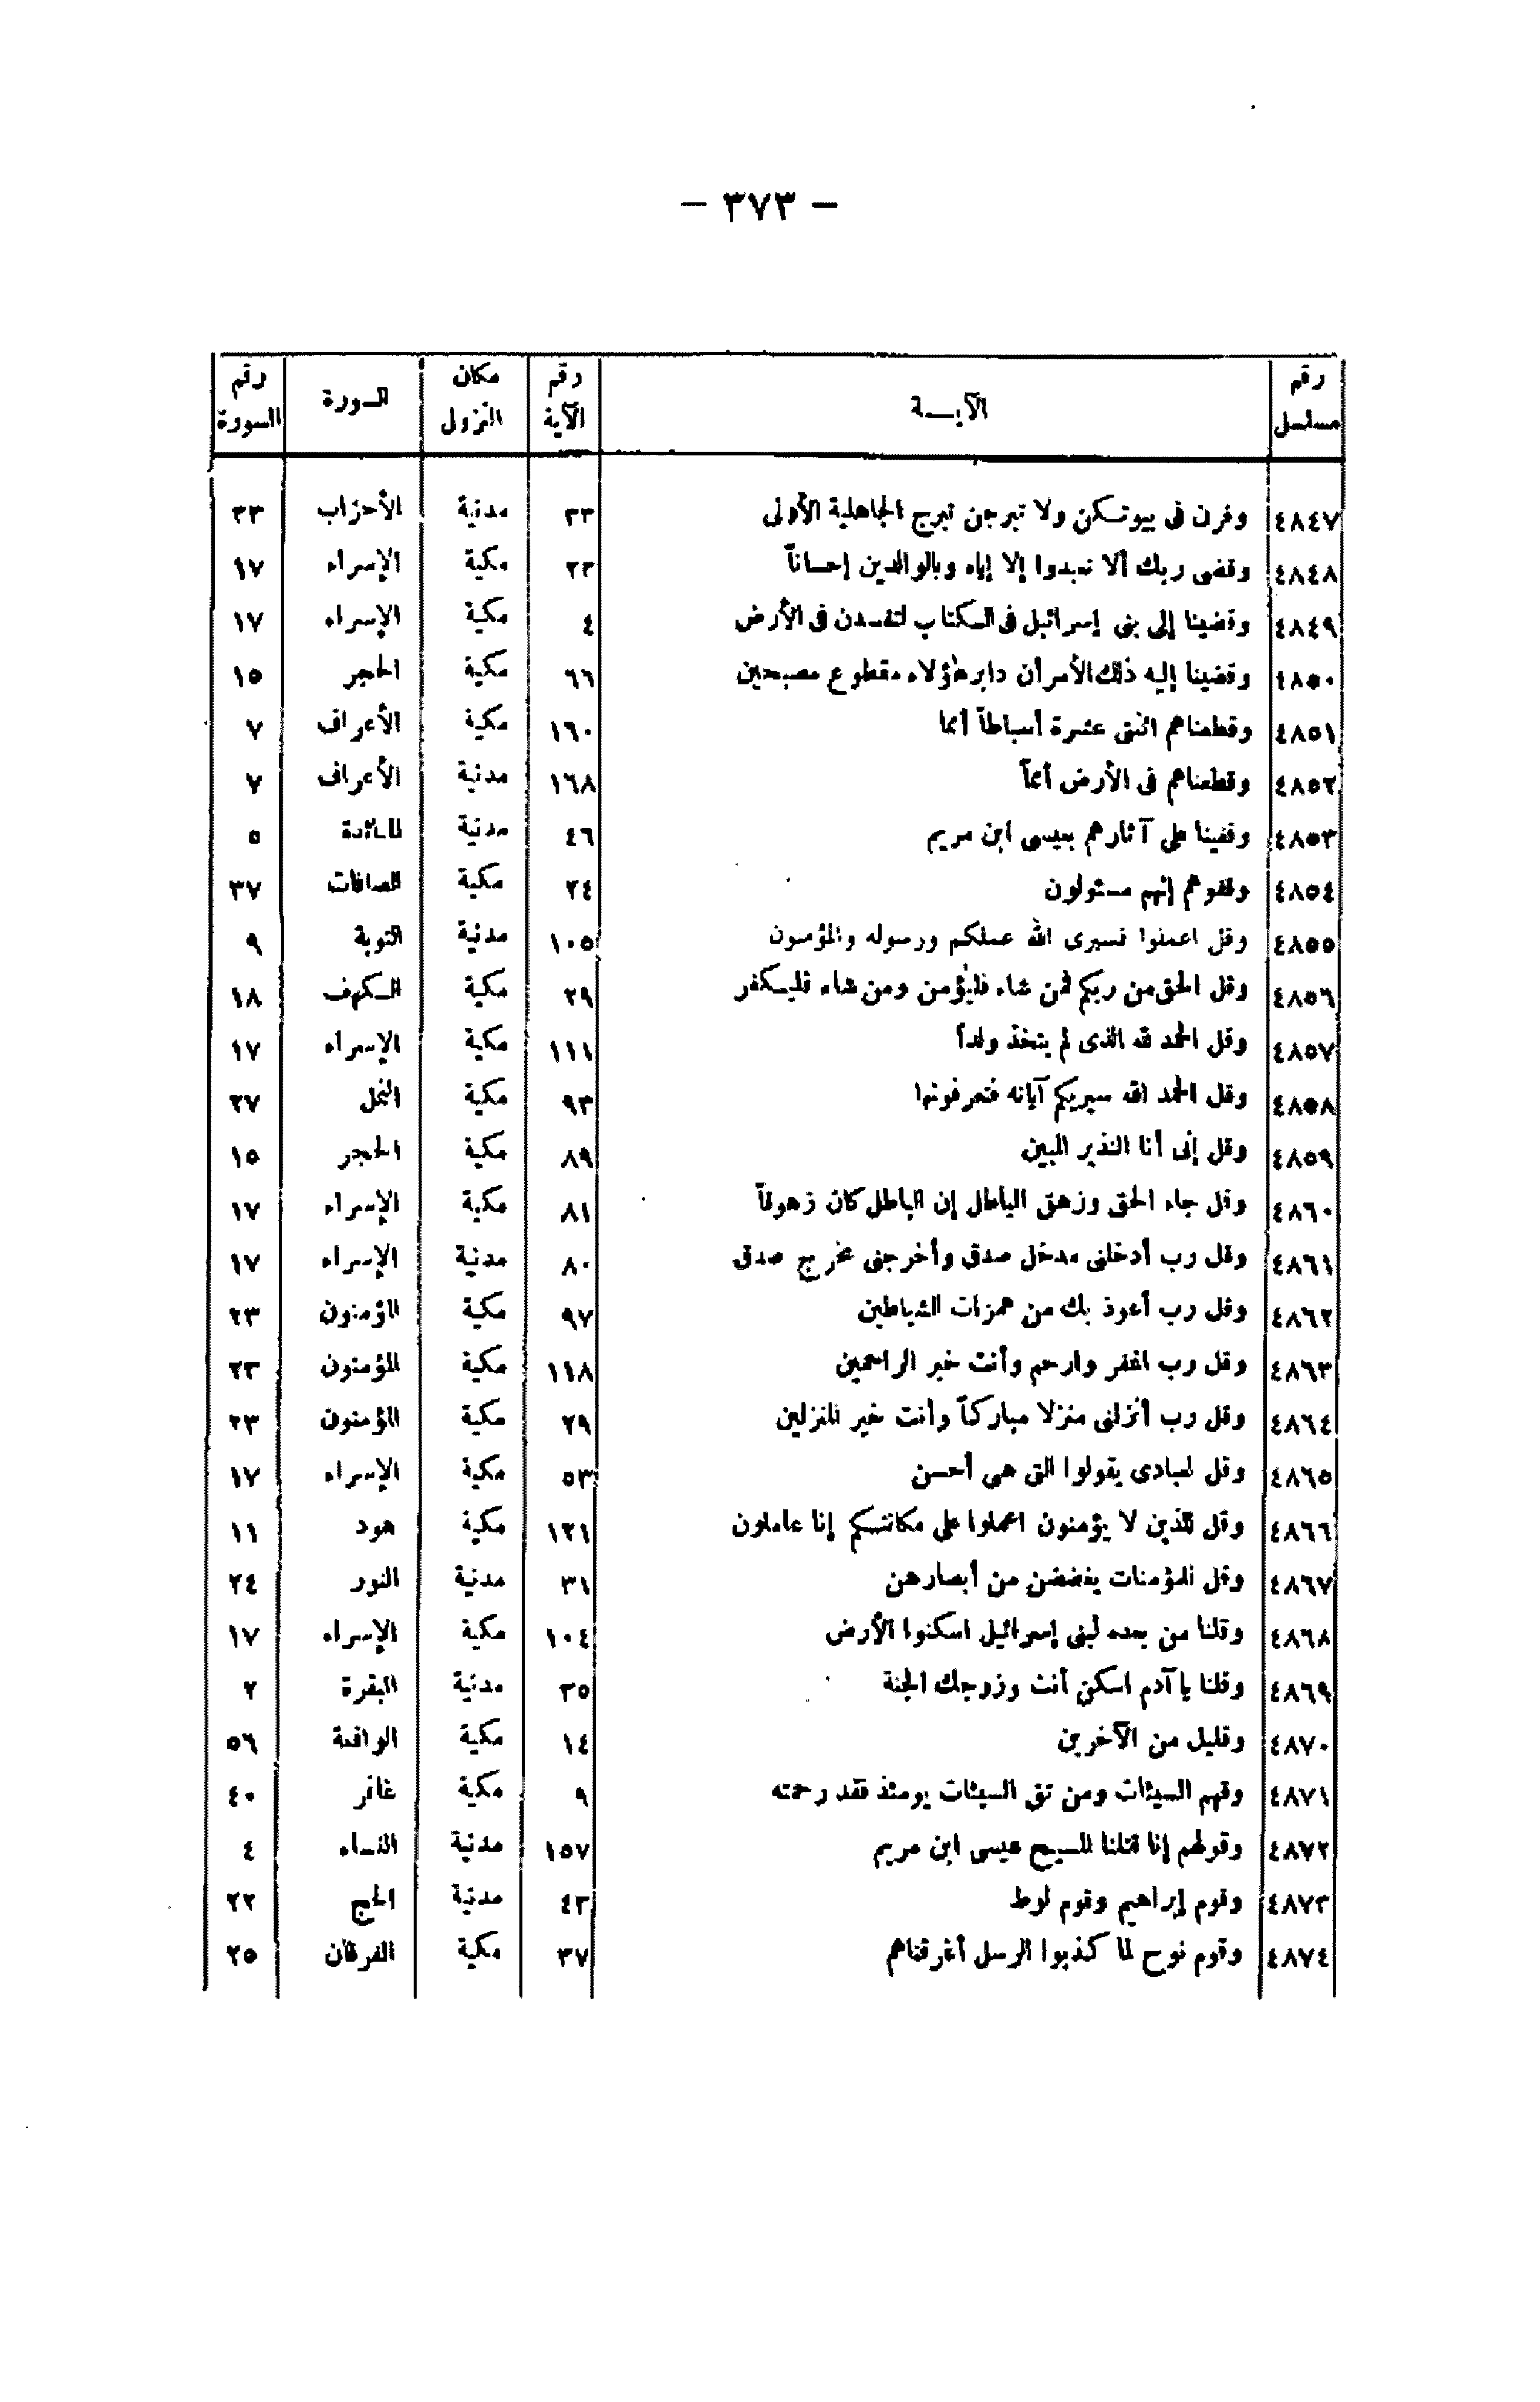 — ٣٧٣ —
رقم مسلسل الآيــة رقم الآية مكان النزول السورة رقم السورة
٤٨٤٧ وقرن فى بيوتكن ولا تبرجن تبرج الجاهلية الأولى ٣٣ مدنية الأحزاب ٣٣
٤٨٤٨ وقضى ربك ألا تعبدوا إلا إياه وبالوالدين إحساناً ٢٣ مكية الإسراء ١٧
٤٨٤٩ وقضينا إلى بنى إسرائيل فى الكتاب لتفسدن فى الأرض ٤ مكية الإسراء ١٧
٤٨٥٠ وقضينا إليه ذلك الأمر أن دابر هؤلاء مقطوع مصبحين ٦٦ مكية الحجر ١٥
٤٨٥١ وقطعناهم اثنتى عشرة أسباطاً أمما ١٦٠ مكية الأعراف ٧
٤٨٥٢ وقطعناهم فى الأرض أمماً ١٦٨ مدنية الأعراف ٧
٤٨٥٣ وقفينا على آثارهم بعيسى ابن مريم ٤٦ مدنية المائدة ٥
٤٨٥٤ وقفوهم إنهم مسئولون ٢٤ مكية الصافات ٣٧
٤٨٥٥ وقل اعملوا فسيرى الله عملكم ورسوله والمؤمنون ١٠٥ مدنية التوبة ٩
٤٨٥٦ وقل الحق من ربكم فمن شاء فليؤمن ومن شاء فليكفر ٢٩ مكية الكهف ١٨
٤٨٥٧ وقل الحمد لله الذى لم يتخذ ولداً ١١١ مكية الإسراء ١٧
٤٨٥٨ وقل الحمد لله سيريكم آياته فتعرفونها ٩٣ مكية النمل ٢٧
٤٨٥٩ وقل إنى أنا النذير المبين ٨٩ مكية الحجر ١٥
٤٨٦٠ وقل جاء الحق وزهق الباطل إن الباطل كان زهوقاً ٨١ مكية الإسراء ١٧
٤٨٦١ وقل رب أدخلنى مدخل صدق وأخرجنى مخرج صدق ٨٠ مدنية الإسراء ١٧
٤٨٦٢ وقل رب أعوذ بك من همزات الشياطين ٩٧ مكية المؤمنون ٢٣
٤٨٦٣ وقل رب اغفر وارحم وأنت خير الراحمين ١١٨ مكية المؤمنون ٢٣
٤٨٦٤ وقل رب أنزلنى منزلا مباركاً وأنت خير المنزلين ٢٩ مكية المؤمنون ٢٣
٤٨٦٥ وقل لعبادى يقولوا التى هى أحسن ٥٣ مكية الإسراء ١٧
٤٨٦٦ وقل للذين لا يؤمنون اعملوا على مكانتكم إنا عاملون ١٢١ مكية هود ١١
٤٨٦٧ وقل للمؤمنات يغضضن من أبصارهن ٣١ مدنية النور ٢٤
٤٨٦٨ وقلنا من بعده لبنى إسرائيل اسكنوا الأرض ١٠٤ مكية الإسراء ١٧
٤٨٦٩ وقلنا يا آدم اسكن أنت وزوجك الجنة ٣٥ مدنية البقرة ٢
٤٨٧٠ وقليل من الآخرين ١٤ مكية الواقعة ٥٦
٤٨٧١ وقهم السيئات ومن تق السيئات يومئذ فقد رحمته ٩ مكية غافر ٤٠
٤٨٧٢ وقولهم إنا قتلنا المسيح عيسى ابن مريم ١٥٧ مدنية النساء ٤
٤٨٧٣ وقوم إبراهيم وقوم لوط ٤٣ مدنية الحج ٢٢
٤٨٧٤ وقوم نوح لما كذبوا الرسل أغرقناهم ٣٧ مكية الفرقان ٢٥